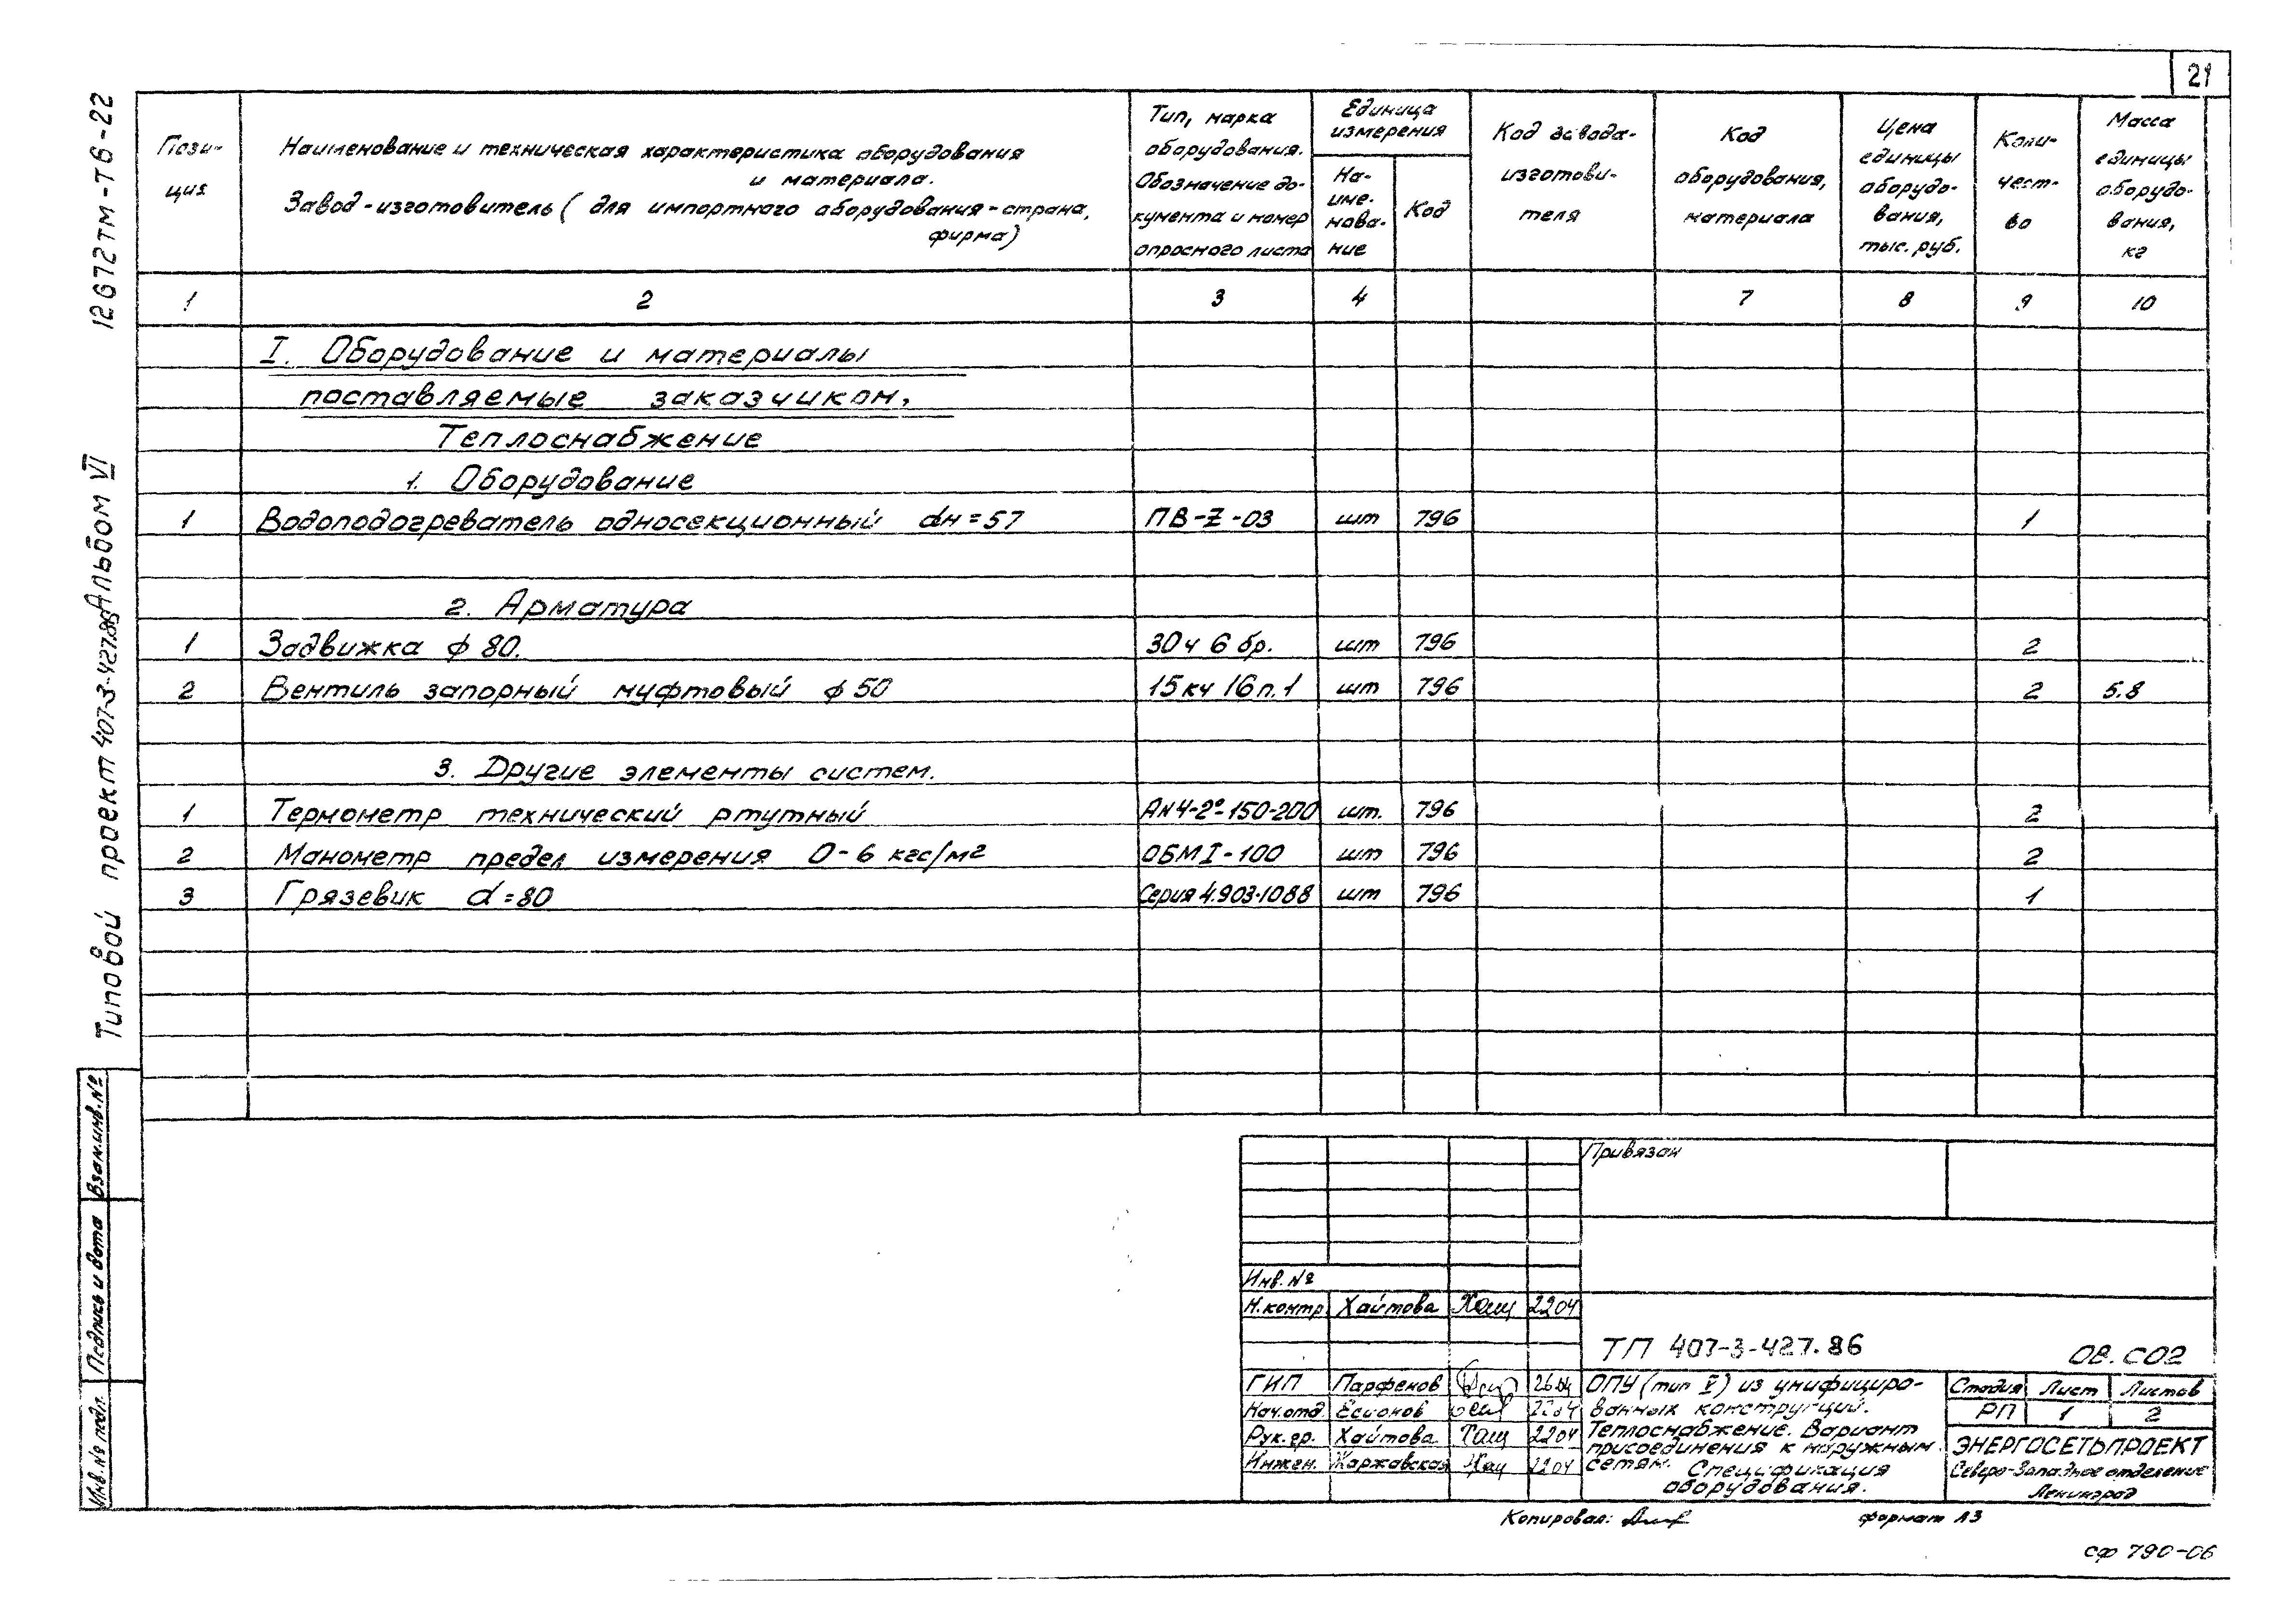 21
12672тм-Т6-22
Типовой проект 407-3-427.86 Альбом VI
Пози-
ция
Наименование и техническая характеристика оборудования
и материала.
Завод-изготовитель (для импортного оборудования-страна,
фирма)
Тип, марка
оборудования.
Обозначение до-
кумента и номер
опросного листа
Единица
измерения
На-
име-
нова-
ние
Код
Код завода-
изготови-
теля
Код
оборудования,
материала
Цена
единицы
оборудо-
вания,
тыс. руб.
Коли-
чест-
во
Масса
единицы
оборудо-
вания,
кг
1 2 3 4 7 8 9 10
I. Оборудование и материалы
поставляемые заказчиком,
Теплоснабжение
1. Оборудование
1 Водоподогреватель односекционный dн=57 ПВ-Z-03 шт 796 1
2. Арматура
1 Задвижка ф 80. 30ч 6 бр. шт 796 2
2 Вентиль запорный муфтовый ф 50 15кч 16п.1 шт 796 2 5.8
3. Другие элементы систем.
1 Термометр технический ртутный АN4-2°-150-200 шт. 796 2
2 Манометр предел измерения 0-6 кгс/м2 ОБМI-100 шт 796 2
3 Грязевик d=80 Серия 4.903-1088 шт 796 1
Взам.инв.№
Подпись и дата
Инв.№ подл.
Привязан
Инв.№
Н.контр. Хаитова 2204
ТП 407-3-427.86 ОВ.СО2
ГИП Парфенов 26.04
Нач.отд Есионов 2204
Рук.гр. Хаитова 2204
Инжен. Каржавская 2204
ОПУ (тип V) из унифициро-
ванных конструкций.
Теплоснабжение. Вариант
присоединения к наружным
сетям. Спецификация
оборудования.
Стадия Лист Листов
РП 1 2
ЭНЕРГОСЕТЬПРОЕКТ
Северо-Западное отделение
Ленинград
Копировал:
формат А3
сф 790-06